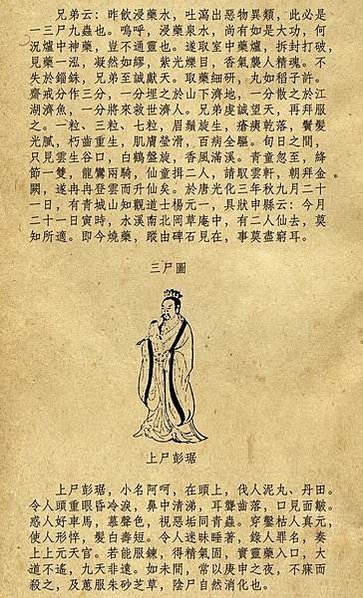 兄弟云：昨飲浸藥水，吐瀉出惡物異類，此必是
一三尸九蟲也。嗚呼，浸藥泉水，尚有如是大功，何
況爐中神藥，豈不通靈也。遂取室中藥爐，拆封打破，
見藥一泓，凝然如繆，紫光爍目，香氣襲人精魂。不
失於錙銖，兄弟至誠獻天。取藥細研，丸如稻子許。
齋戒分作三分，一分埋之於山下濟地，一分散之於江
湖濟魚，一分將來救世濟人。兄弟虔誠望天，再拜服
之。一粒、三粒、七粒，眉鬚旋生，瘡痍乾落，鬢髮
光膩，朽齒重生，肌膚瑩滑，百病全驅。旬日之間，
只見雲生谷口，白鶴盤旋，香風滿溪。青童忽至，絳
節一雙，龍鸞兩騎，仙童揖二人，請馭雲軒，朝拜金
闕，遂冉冉登雲而升仙矣。於唐光化三年秋九月二十
一日，有青城山知觀道士楊元一，具狀申縣云：今月
二十一日寅時，水溪南北岡草庵中，有二人仙去，莫
知所適。即今燒藥，蹤由碑石見在，事莫盡窮耳。
三尸圖
上尸彭琚
上尸彭琚，小名阿呵，在頭上，伐人泥丸、丹田。
令人頭重眼昏冷淚，鼻中清涕，耳聾齒落，口臭面皺。
惑人好車馬，慕聲色，視惡垢同青蟲。穿鑿枯人真元，
使人形悴，髮白壽短。令人迷昧睡著，錄人罪名，奏
上上元天官。若能服鍊，得精氣固，實靈藥入口，大
道不遙，九天非遠。如未間，常以庚申之夜，不寐而
殺之，及蔥服朱砂芝草，陰尸自然消化也。